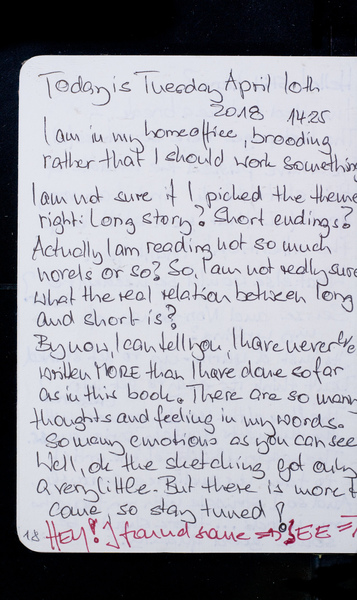 Today is Tuesday April 10th
2018 1425
I am in my homeoffice, brooding
rather that I should work somethin
I am not sure if I picked the theme
right: Long story? Short endings?
Actually I am reading not so much
novels or so? So, I am not really sure
what the real relation between long
and short is?
By now, I can tell you, I have never
written MORE than I have done so far
as in this book. There are so many
thoughts and feeling in my words.
So many emotions as you can see
Well, ok the sketching got only
a very little. But there is more t
come, so stay tuned!
18 HEY! I found some => SEE =>